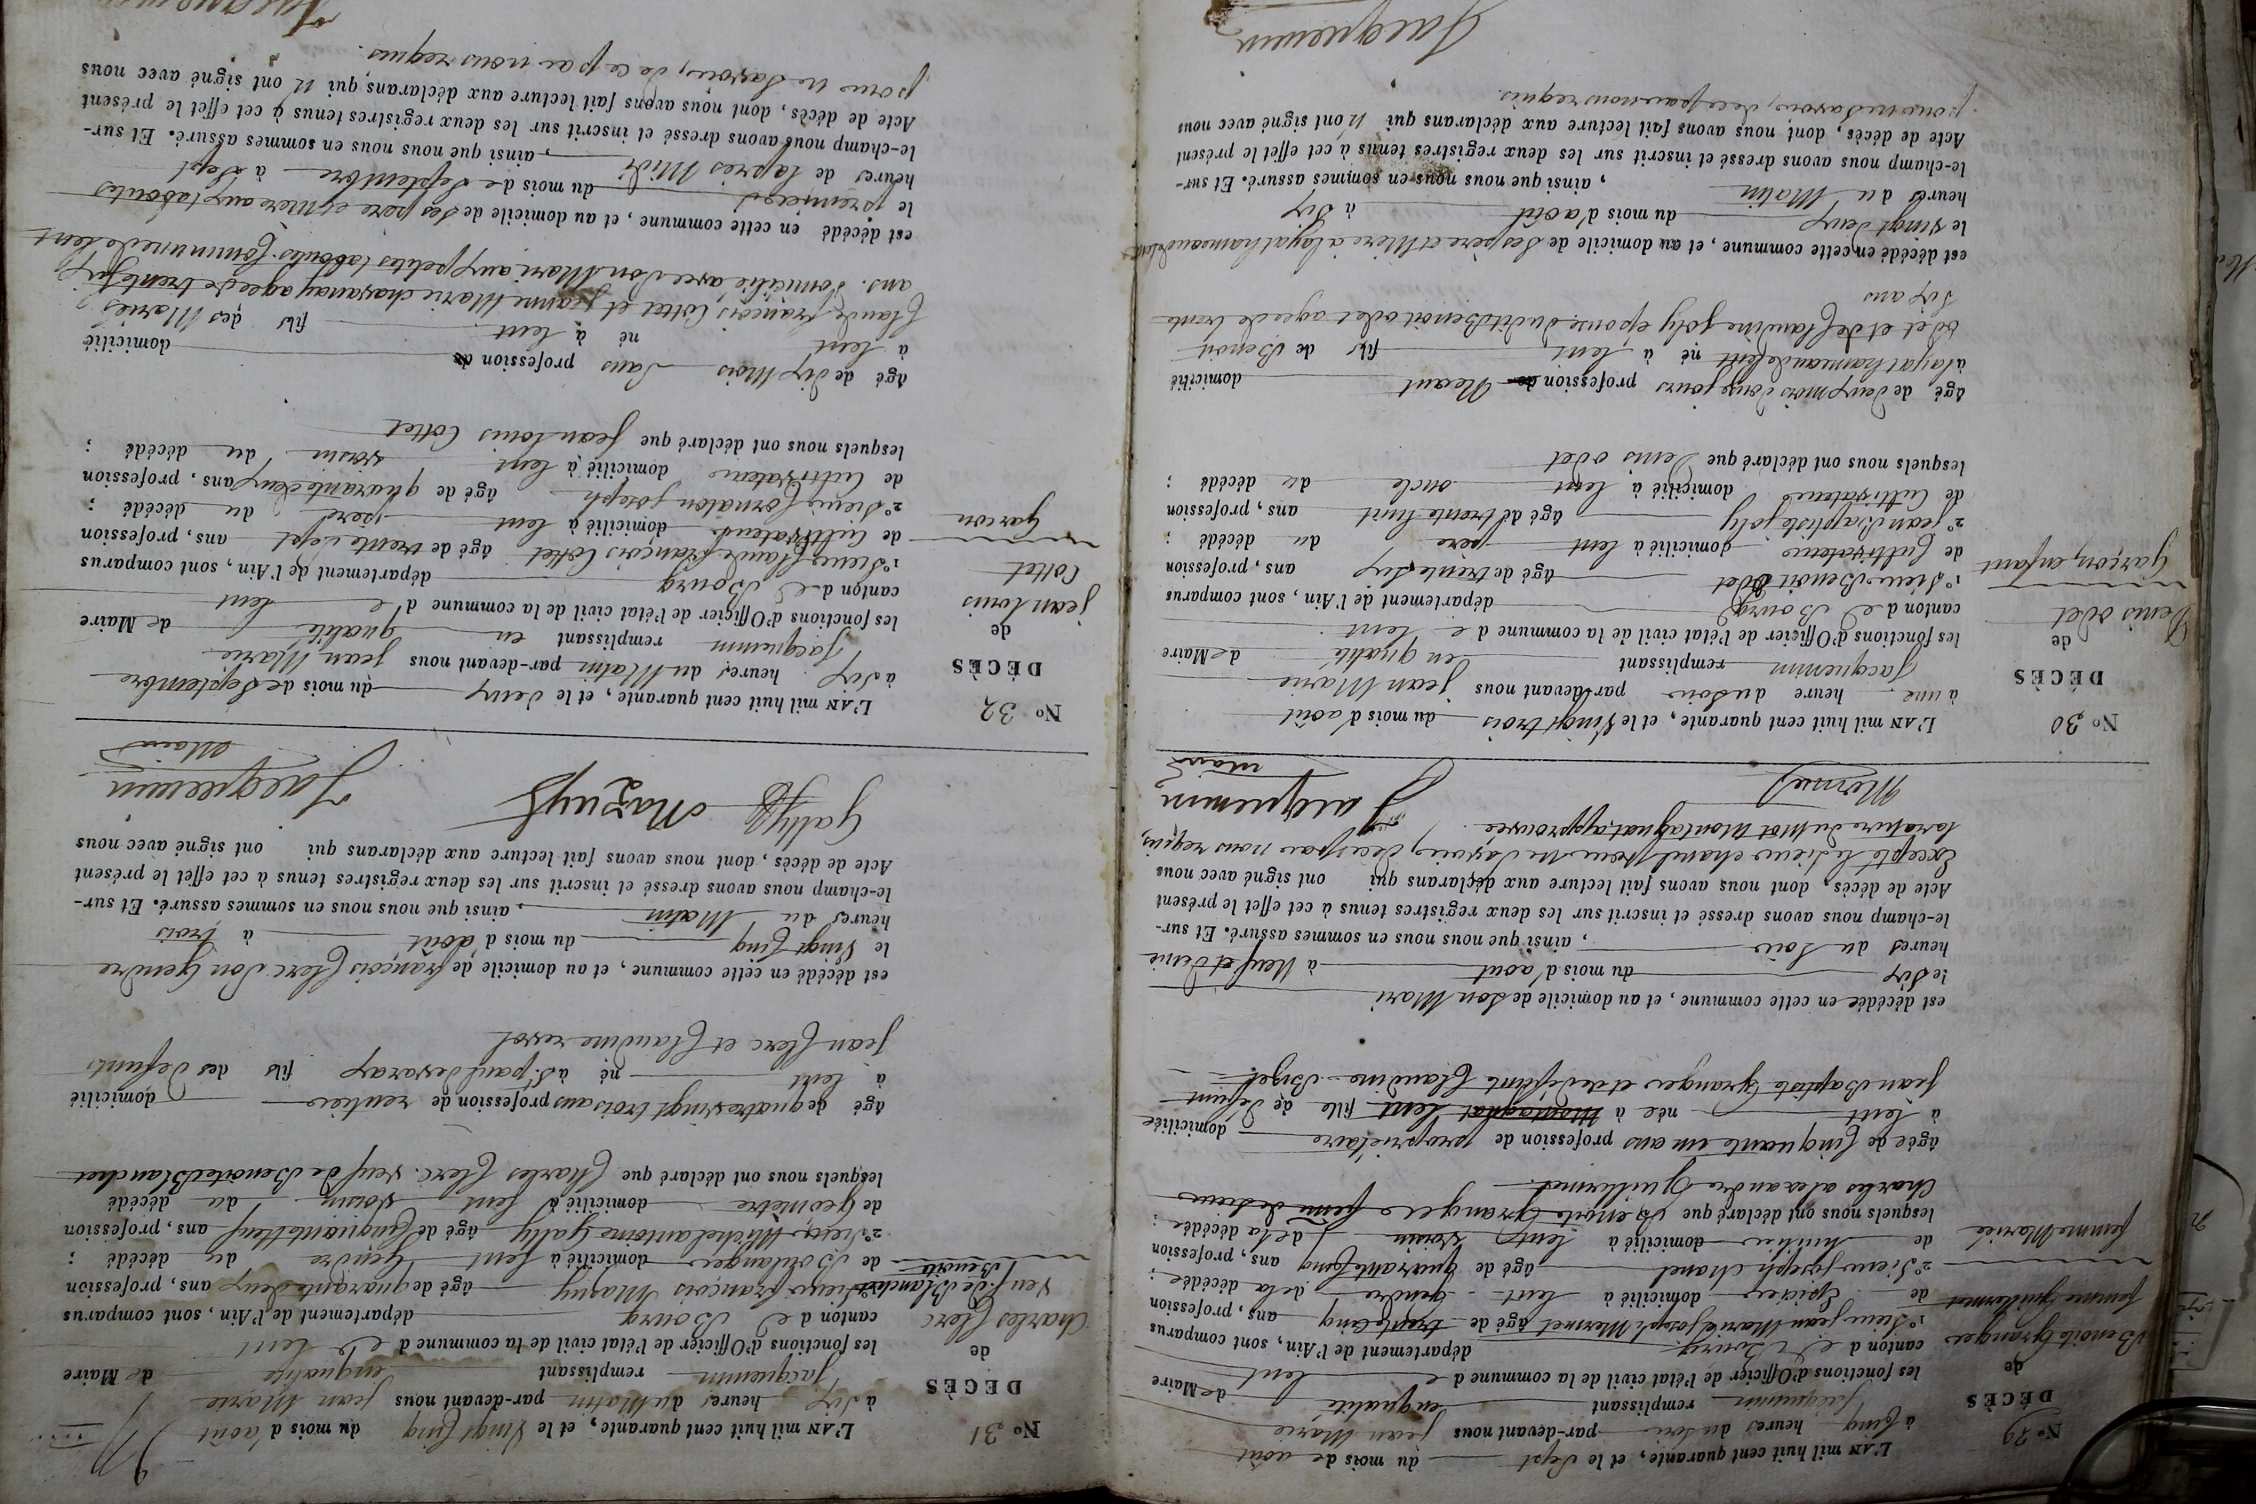 N° 29
DÉCÈS
de
Benoite Granger
femme Guillermet
femme Mariée
L'AN mil huit cent quarante, et le Sept du mois de août
à Cinq heures du soir par-devant nous jean Marie
Jacquemin remplissant en qualité de Maire
les fonctions d'Officier de l'état civil de la commune d e lent
canton d e Bourg département de l'Ain, sont comparus
1° Sieur jean Marie joseph Mermet âgé de trente Cinq ans, profession
de Epicier domicilié à lent gendre de la décédée ;
2° Sieur joseph chanel âgé de quarante Cinq ans, profession
de huilier domicilié à lent voisin de la décédée ;
lesquels nous ont déclaré que Benoite Granger femme de Sieur
Charles alexandre Guillermet
âgée de Cinquante un ans profession de propriétaire domiciliée
à lent née à Montagnat lent fille de défunt
jean Baptiste Granger et de défunte Claudine Bizet
est décédée en cette commune, et au domicile de son Mari
le Six du mois d'août à Neuf et demie
heures du soir, ainsi que nous nous en sommes assuré. Et sur-
le-champ nous avons dressé et inscrit sur les deux registres tenus à cet effet le présent
Acte de décès, dont nous avons fait lecture aux déclarans qui ont signé avec nous
Excepté le Sieur chanel pour ne Savoir, de ce par nous requis,
la rature du Mot Montagnat approuvée.
Mermet Jacquemin
maire
N° 30
DÉCÈS
de
Denis odet
Garçon, enfant
L'AN mil huit cent quarante, et le Vingt trois du mois d'août
à une heure du soir par-devant nous jean Marie
Jacquemin remplissant en qualité de Maire
les fonctions d'Officier de l'état civil de la commune d e lent
canton d e Bourg département de l'Ain, sont comparus
1° Sieur Benoit Odet âgé de trente Six ans, profession
de Cultivateur domicilié à lent père du décédé ;
2° jean Baptiste joly âgé de trente huit ans, profession
de Cultivateur domicilié à lent oncle du décédé ;
lesquels nous ont déclaré que Denis odet
âgé de deux mois douze jours profession de Néant domicilié
à layat hameau de lent né à lent fils de Benoit
odet et de Claudine joly épouse dudit Benoit odet agée de trente
Six ans
est décédé en cette commune, et au domicile de Ses père et Mère à layat hameau de lent
le vingt deux du mois d'août à Six
heures du Matin, ainsi que nous nous en sommes assuré. Et sur-
le-champ nous avons dressé et inscrit sur les deux registres tenus à cet effet le présent
Acte de décès, dont nous avons fait lecture aux déclarans qui n'ont signé avec nous
pour ne Savoir, de ce par nous requis.
Jacquemin
N° 31
DÉCÈS
de
Charles Clerc
veuf de Blanchet
Benoite
L'AN mil huit cent quarante, et le Vingt Cinq du mois d'août
à Six heures du Matin par-devant nous jean Marie
Jacquemin remplissant en qualité de Maire
les fonctions d'Officier de l'état civil de la commune d e lent
canton d e Bourg département de l'Ain, sont comparus
1° Sieur françois Mazuy âgé de quarante deux ans, profession
de Boulanger domicilié à lent Gendre du décédé ;
2° Sieur Michel antoine Gally âgé de Cinquante Neuf ans, profession
de Géomètre domicilié à lent voisin du décédé
lesquels nous ont déclaré que Charles Clerc veuf de Benoite Blanchet
âgé de quatre vingt trois ans profession de rentier domicilié
à lent né à St paul devarax fils des défunts
jean Clerc et Claudine revol
est décédé en cette commune, et au domicile de françois Clerc Son Gendre
le Vingt Cinq du mois d'août à trois
heures du Matin, ainsi que nous nous en sommes assuré. Et sur-
le-champ nous avons dressé et inscrit sur les deux registres tenus à cet effet le présent
Acte de décès, dont nous avons fait lecture aux déclarans qui ont signé avec nous
Gally Mazuy Jacquemin
Maire
N° 32
DÉCÈS
de
jean louis
Cottet
Garcon
L'AN mil huit cent quarante, et le deux du mois de Septembre
à Six heures du Matin par-devant nous jean Marie
Jacquemin remplissant en qualité de Maire
les fonctions d'Officier de l'état civil de la commune d e lent
canton d e Bourg département de l'Ain, sont comparus
1° Sieur Claude françois Cottet âgé de trente sept ans, profession
de Cultivateur domicilié à lent père du décédé ;
2° Sieur Cornaton joseph âgé de quarante deux ans, profession
de Cultivateur domicilié à lent voisin du décédé ;
lesquels nous ont déclaré que jean louis Cottet
âgé de Six Mois Sans profession de domicilié
à lent né à lent fils des Mariés
Claude françois Cottet et jeanne Marie chavanay agée de trente Six
ans. domiciliée avec Son Mari aux petites taboules Commune de lent
est décédé en cette commune, et au domicile de Ses père et Mère aux taboules
le premier du mois de Septembre à Sept
heures de l'après Midi, ainsi que nous nous en sommes assuré. Et sur-
le-champ nous avons dressé et inscrit sur les deux registres tenus à cet effet le présent
Acte de décès, dont nous avons fait lecture aux déclarans, qui n'ont signé avec nous
pour ne Savoir, de ce par nous requis.
Jacquemin